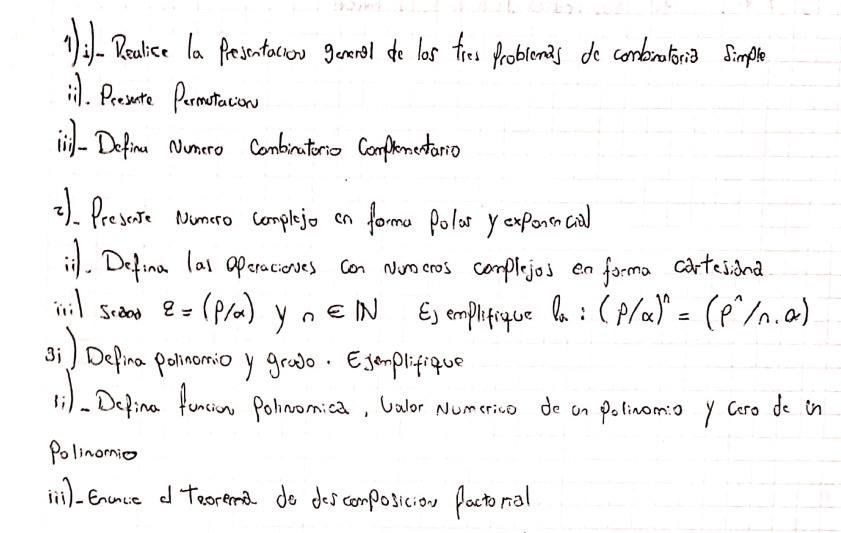 1) i)- Realice la presentacion general de los tres problemas de combinatoria simple
ii). Presente Permutacion
iii)- Defina Numero Combinatorio Complementario
2)- Presente Numero complejo en forma polar y exponencial
ii). Defina las operaciones con Numeros complejos en forma cartesiana
iii) sean z = (ρ/α) y n ∈ IN Ejemplifique la : (ρ/α)^n = (ρ^n/n.α)
3i) Defina polinomio y grado. Ejemplifique
ii)- Defina funcion Polinomica, Valor Numerico de un polinomio y Cero de un
Polinomio
iii)- Enuncie el teorema de descomposicion factorial